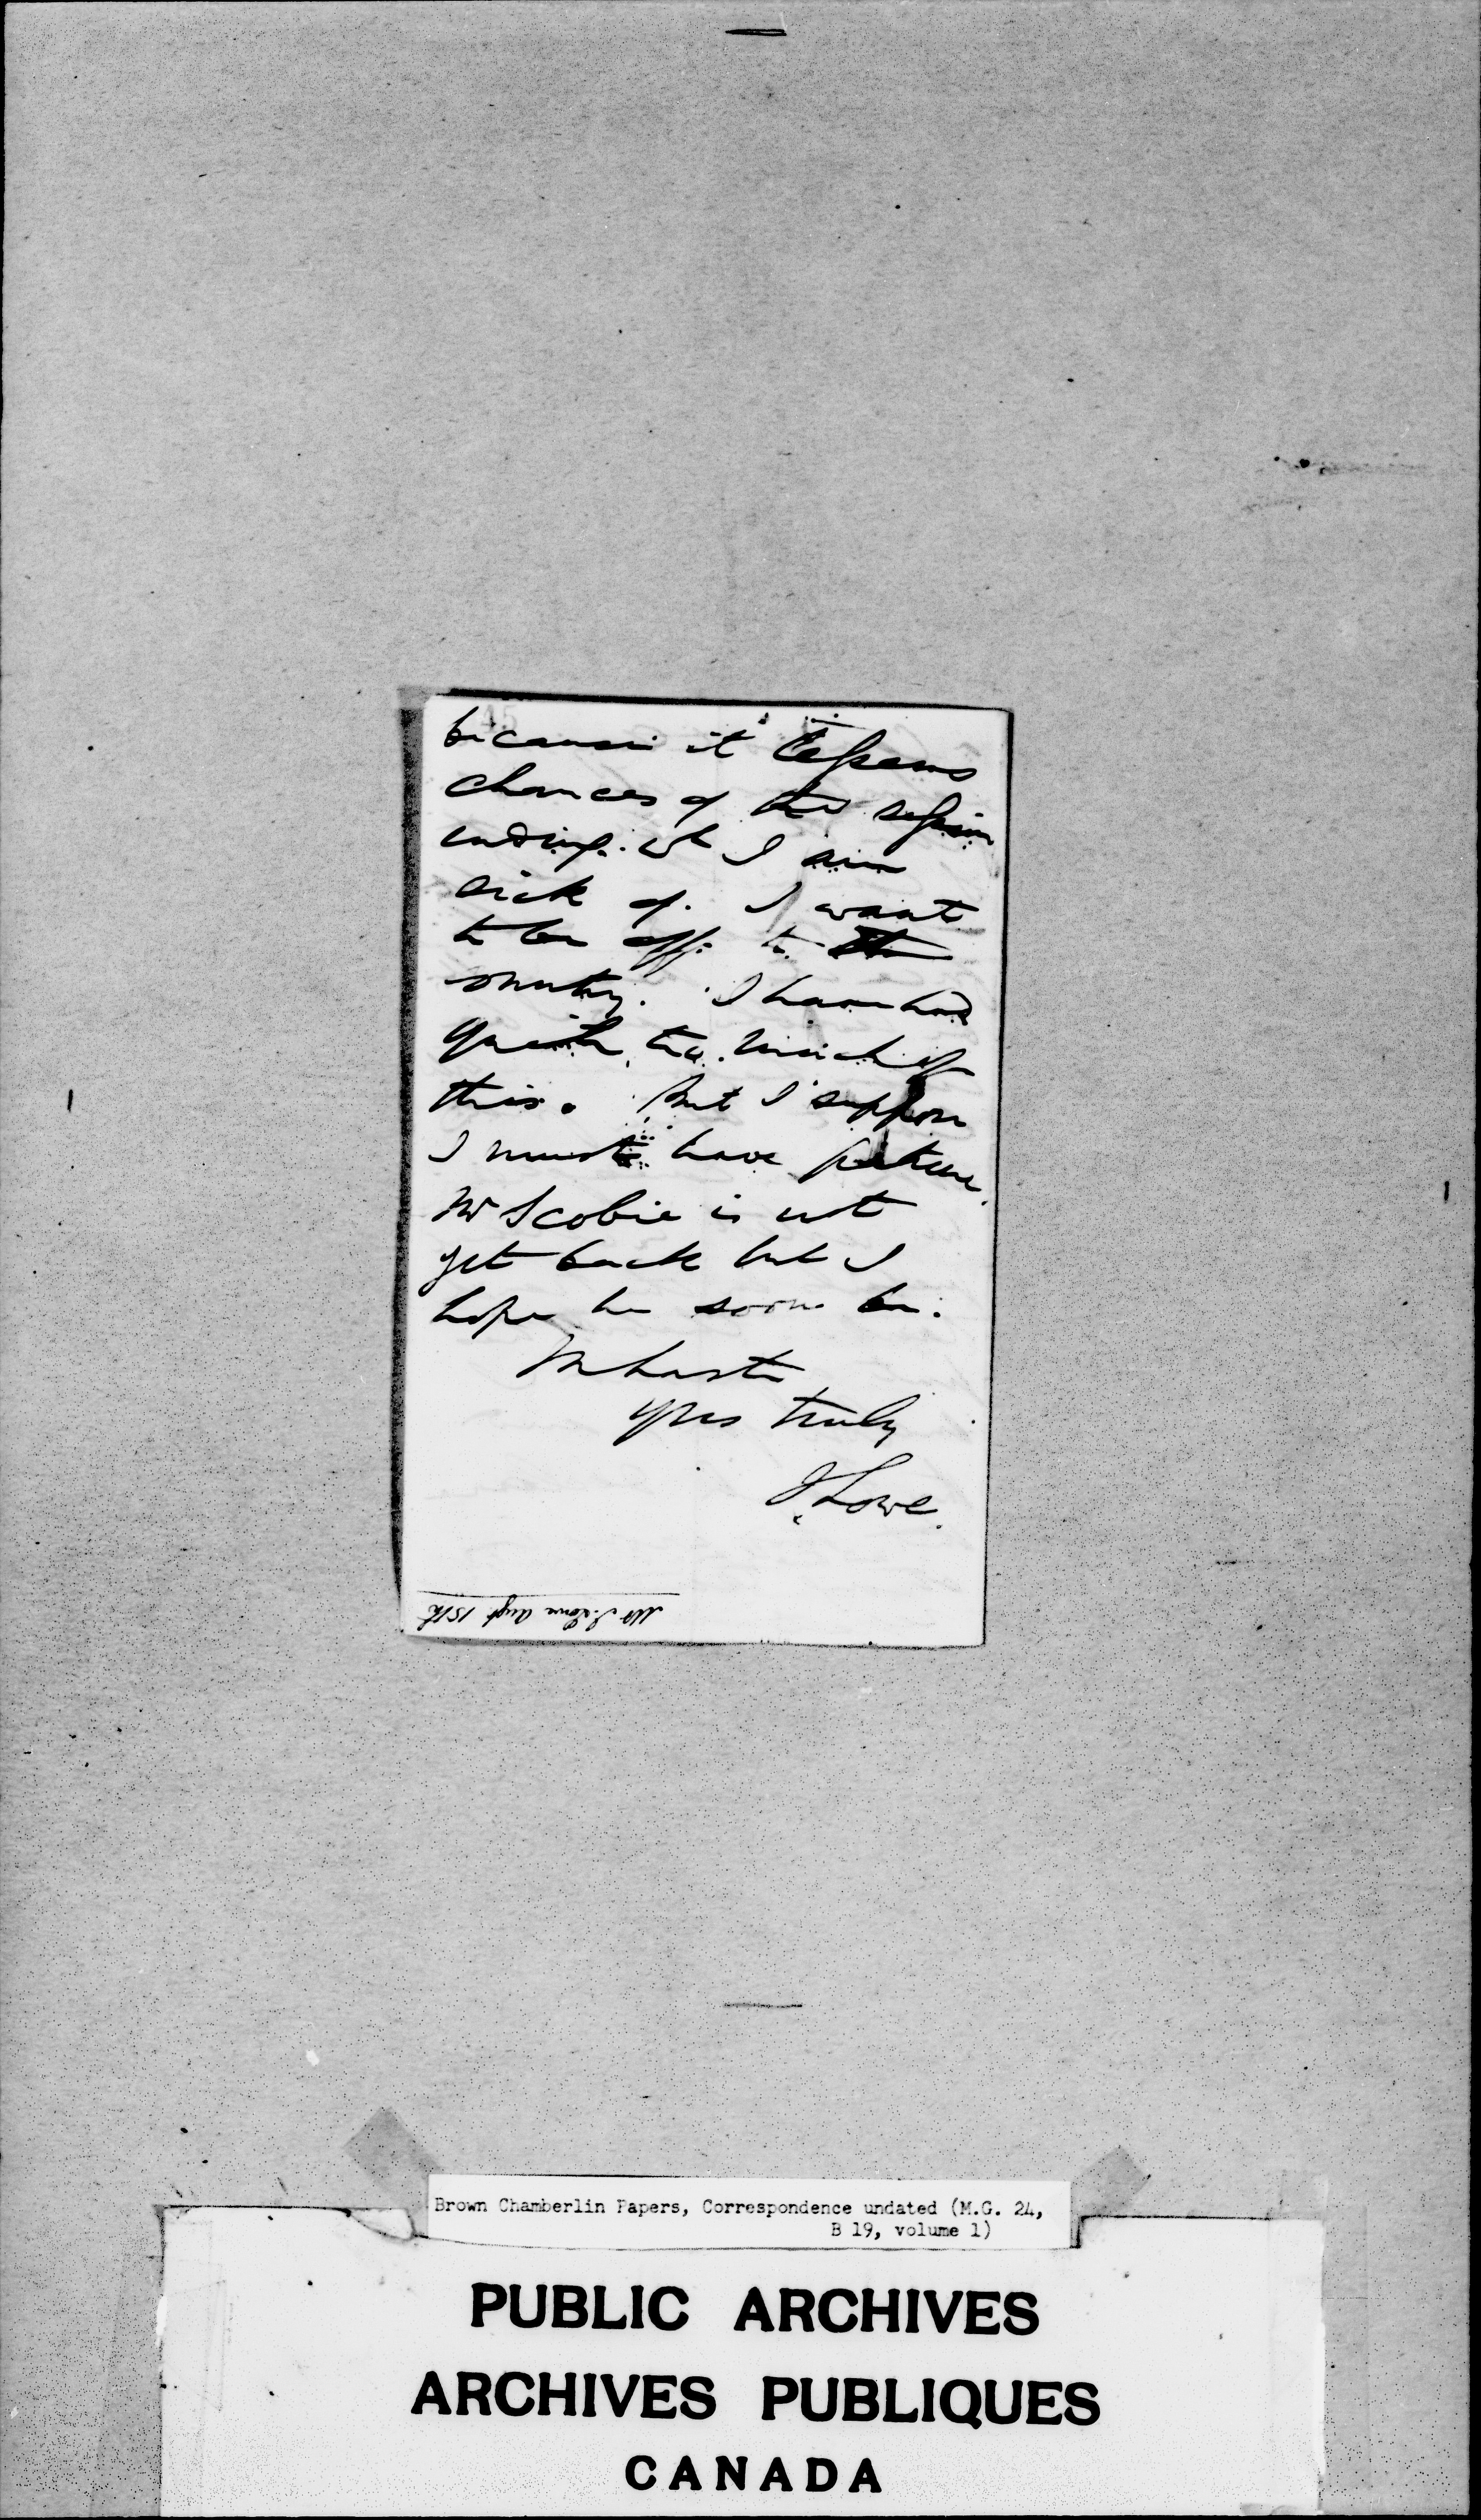 45
because it lessens
chances of the session
ending wh I am
sick of. I want
to be off to the
country. I have had
quite too much of
this. But I suppose
I must have patience.
Mr Scobie is not
yet back but I
hope he soon be.
In haste
Yrs truly
J Lowe.
Mr J. Lowe Augt 15th
Brown Chamberlin Papers, Correspondence undated (M.G. 24,
B 19, volume 1)
PUBLIC ARCHIVES
ARCHIVES PUBLIQUES
CANADA